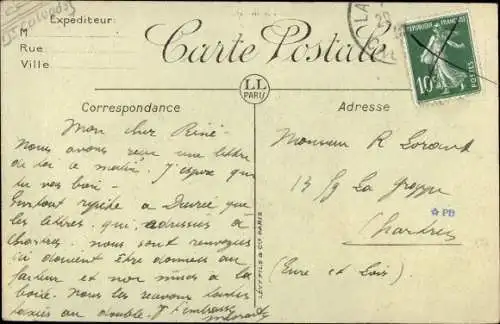 Expéditeur:
M
Rue:
Ville
Carte Postale
LA
RÉPUBLIQUE FRANÇAISE
10c
POSTES
LL
PARIS
Correspondance
Adresse
Mon cher René
Nous avons reçu une lettre
de toi ce matin. J'espère que
tu vas bien
Surtout répète à que
les lettres qui, adressées à
Chartres, nous sont renvoyées
ici doivent être données au
facteur et non mises à la
boîte. Nous les recevons toutes
taxées au double. J t'embrasse
Monsieur R
13 fg La Grappe
Chartres
(Eure et Loir)
PB
LÉVY FILS & Cie PARIS